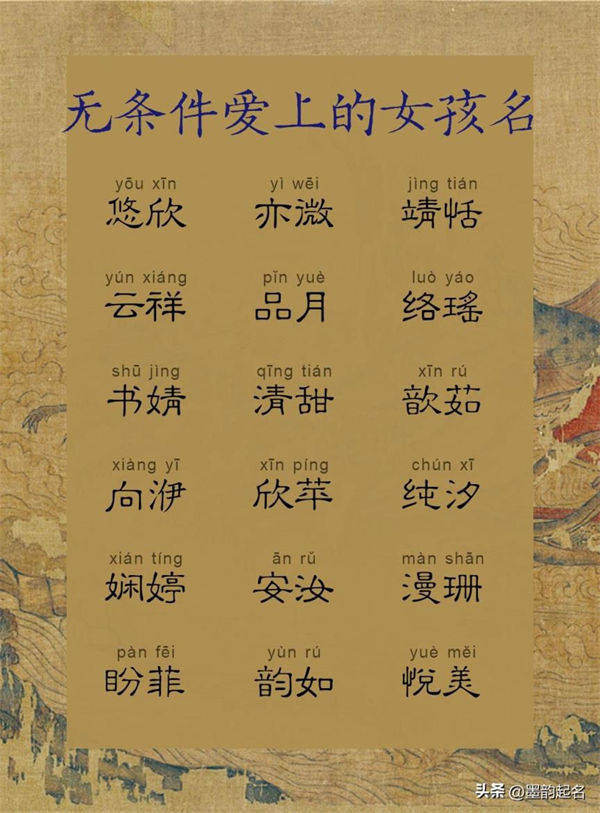 无条件爱上的女孩名
yōu xīn yì wēi jìng tián
悠欣 亦微 靖恬
yún xiáng pǐn yuè luò yáo
云祥 品月 络瑶
shū jìng qīng tián xīn rú
书婧 清甜 歆茹
xiàng yī xīn píng chún xī
向洢 欣苹 纯汐
xián tíng ān rǔ màn shān
娴婷 安汝 漫珊
pàn fēi yùn rú yuè měi
盼菲 韵如 悦美
头条 @墨韵起名